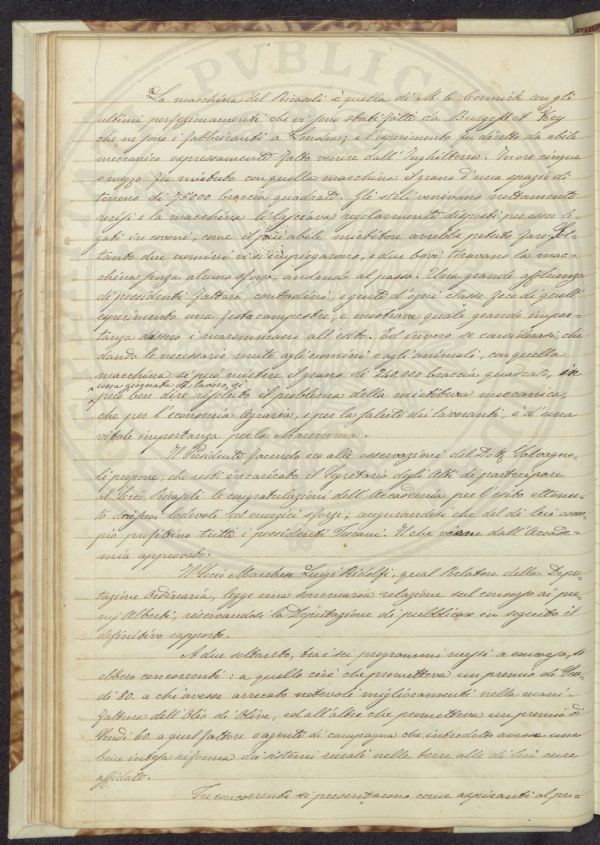 La macchina del Ricasoli è quella di Mc Cormick con gli
ultimi perfezionamenti che vi sono stati fatti da Burgess et Key
che ne sono i fabbricanti a Londra; e l'esperimento fu diretto da abile
meccanico espressamente fatto venire dall'Inghilterra. In ore cinque
e mezzo fu mietuto con quella macchina il grano d'uno spazio di
terreno di 78000 braccia quadrate. Gli steli venivano nettamente
recisi e la macchina li lasciava regolarmente disposti per esser le-
gati in covoni, come il più abile mietitore avrebbe potuto fare. Sol-
tanto due uomini vi si impiegarono, e due bovi tiravano la mac-
china senza alcuno sforzo, andando al passo. Una grande affluenza
di possidenti fattori, contadini, e gente d'ogni classe fece di quell'
esperimento una festa campestre, e mostrava quale grande impor-
tanza i maremmani all'esito. Ed invero se consideresi, che
dando le necessarie mute agli uomini e agli animali, con quella
macchina si può mietere il grano di 240,000 braccia quadrate, in
una giornata di lavoro, si
può ben dire risoluto il problema della mietitura meccanica,
che per l'economia Agraria, e per la salute dei lavoranti, è d'una
vitale importanza per la Maremma.
Il Presidente facendo eco alle osservazioni del Dott. Salvagno-
li propone, che resti incaricato il Segretario degli Atti di partecipare
al Socio Ricasoli le congratulazioni dell'Accademia per l'esito ottenu-
to dai suoi lodevoli ed energici sforzi, augurandosi che del di lui esem-
pio profittino tutti i possidenti Toscani. Il che viene dall'Accade-
mia approvato.
Il Socio Marchese Luigi Ridolfi, qual Relatore della Depu-
tazione Ordinaria, legge una sommaria relazione sul concorso ai pre-
mj Alberti, riservandosi la Deputazione di pubblicare in seguito il
definitivo rapporto.
A due soltanto, trai sei programmi messi a concorso, si
ebbero concorrenti: a quello cioè che prometteva un premio di Scu-
di 80. a chi avesse arrecato notevoli miglioramenti nella mani-
fattura dell'Olio di Olive, ed all'altro che prometteva un premio di
Scudi 60. a quel fattore o agente di campagna che introdotto avesse una
bene intesa riforma dei sistemi rurali nelle terre alle di lui cure
affidate.
Tre concorrenti si presentarono come aspiranti al pre-